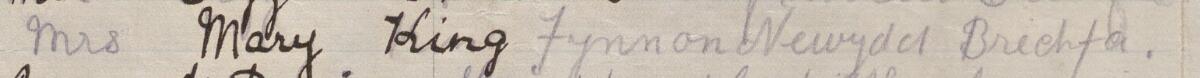 Mrs Mary King Fynnon Newydd Brechfa.